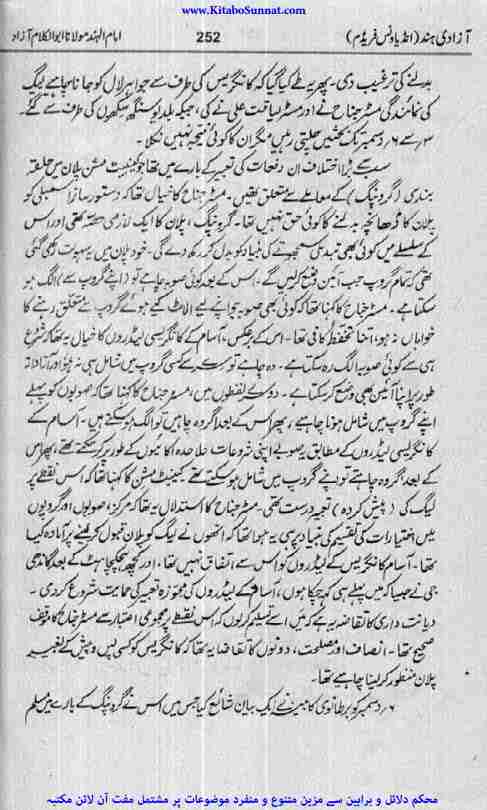 www.KitaboSunnat.com
آزادی ہند (انڈیا ونس فریڈم) 252 امام الہند مولانا ابوالکلام آزاد
بدلنے کی ترغیب دی۔ پھر یہ طے کیا گیا کہ کانگریس کی طرف سے جواہر لال کو جانا چاہیے لیگ
کی نمائندگی مسٹر جناح نے اور مسٹر لیاقت علی نے کی، جبکہ بلدیو سنگھ سکھوں کی طرف سے گئے۔
۳ سے ۶ دسمبر تک بحثیں چلتی رہیں مگر ان کا کوئی نتیجہ نہیں نکلا۔
سب سے بڑا اختلاف ان دفعات کی تعبیر کے بارے میں تھا جو کیبنیٹ مشن پلان میں حلقہ
بندی (گروپنگ) کے معاملے سے متعلق تھیں۔ مسٹر جناح کا خیال تھا کہ دستور ساز اسمبلی کو
پلان کا ڈھانچہ بدلنے کا کوئی حق نہیں تھا۔ گروپنگ، پلان کا ایک لازمی حصہ تھی اور اس
کے سلسلے میں کوئی بھی تبدیلی سمجھوتے کی بنیاد کو بدل کر رکھ دے گی۔ خود پلان میں یہ سہولت رکھی گئی
تھی کہ تمام گروپ جب آئین وضع کر لیں گے۔ اس کے بعد کوئی صوبہ چاہے تو (اپنے گروپ سے) الگ ہو
سکتا ہے۔ مسٹر جناح کا کہنا تھا کہ کوئی بھی صوبہ جو اپنے لیے الاٹ کیے ہوئے گروپ سے متعلق رہنے کا
خواہاں نہ ہو، اتنا تحفظ کافی تھا۔ اس کے برعکس، آسام کے کانگریسی لیڈروں کا خیال یہ تھا کہ شروع
ہی سے کوئی صوبہ الگ رہ سکتا ہے۔ وہ چاہے تو سرے سے کسی گروپ میں شامل ہی نہ ہو اور آزادانہ
طور پر اپنا آئین بھی وضع کر سکتا ہے۔ دوسرے لفظوں میں، مسٹر جناح کا کہنا تھا کہ صوبوں کو پہلے
اپنے گروپ میں شامل ہونا چاہیے، پھر اس کے بعد اگر وہ چاہیں تو الگ ہو سکتے ہیں۔ آسام کے
کانگریسی لیڈروں کے مطابق یہ صوبے اپنی شروعات علاحدہ اکائیوں کے طور پر کر سکتے تھے، پھر اس
کے بعد اگر وہ چاہتے تو اپنے گروپ میں شامل ہو سکتے تھے کیبنیٹ مشن کا کہنا تھا کہ اس نقطے پر
لیگ کی (پیش کردہ) تعبیر درست تھی۔ مسٹر جناح کا استدلال یہ تھا کہ مرکز، صوبوں اور گروپوں
میں اختیارات کی تقسیم کی بنیاد پر ہی یہ ہوا تھا کہ انھوں نے لیگ کو پلان قبول کر لینے پر آمادہ کیا
تھا۔ آسام کانگریس کے لیڈروں کو اس سے اتفاق نہیں تھا، اور کچھ ہچکچاہٹ کے بعد گاندھی
جی نے جیسا کہ میں پہلے ہی کہہ چکا ہوں، آسام کے لیڈروں کی مجوزہ تعبیر کی حمایت شروع کر دی۔
دیانت داری کا تقاضہ یہ ہے کہ میں اسے تسلیم کر لوں کہ اس نقطے پر مجموعی اعتبار سے مسٹر جناح کا موقف
صحیح تھا۔ انصاف اور مصلحت، دونوں کا تقاضا یہ تھا کہ کانگریس کو کسی پس و پیش کے بغیر
پلان منظور کر لینا چاہیے تھا۔
۶ دسمبر کو برطانوی کابینہ نے ایک بیان شائع کیا جس میں اس نے گروپنگ کے بارے میں مسلم
محکم دلائل و براہین سے مزین متنوع و منفرد موضوعات پر مشتمل مفت آن لائن مکتبہ